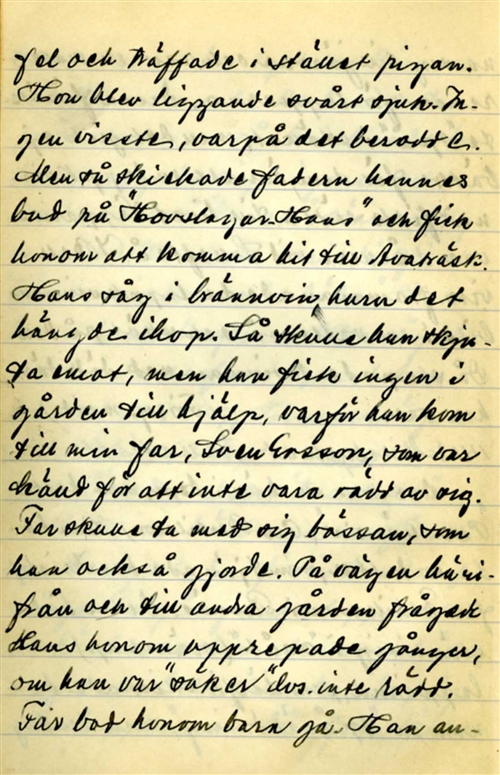 fel och träffade i stället pigan.
Hon blev liggande svårt sjuk. In-
gen visste, varpå det berodde.
Men så skickade fadern hennes
bud på "Hovslagar-Hans" och fick
honom att komma hit till Avaträsk.
Hans såg i brännvin, huru det
hängde ihop. Så skulle han skju-
ta emot, men han fick ingen i
gården till hjälp, varför han kom
till min far, Sven Ersson, som var
känd för att inte vara rädd av sig.
Far skulle ta med sig bössan, som
han också gjorde. På vägen häri-
från och till andra gården frågade
Hans honom upprepade gånger,
om han var "säker" dvs. inte rädd.
Far bad honom bara gå. Han an-